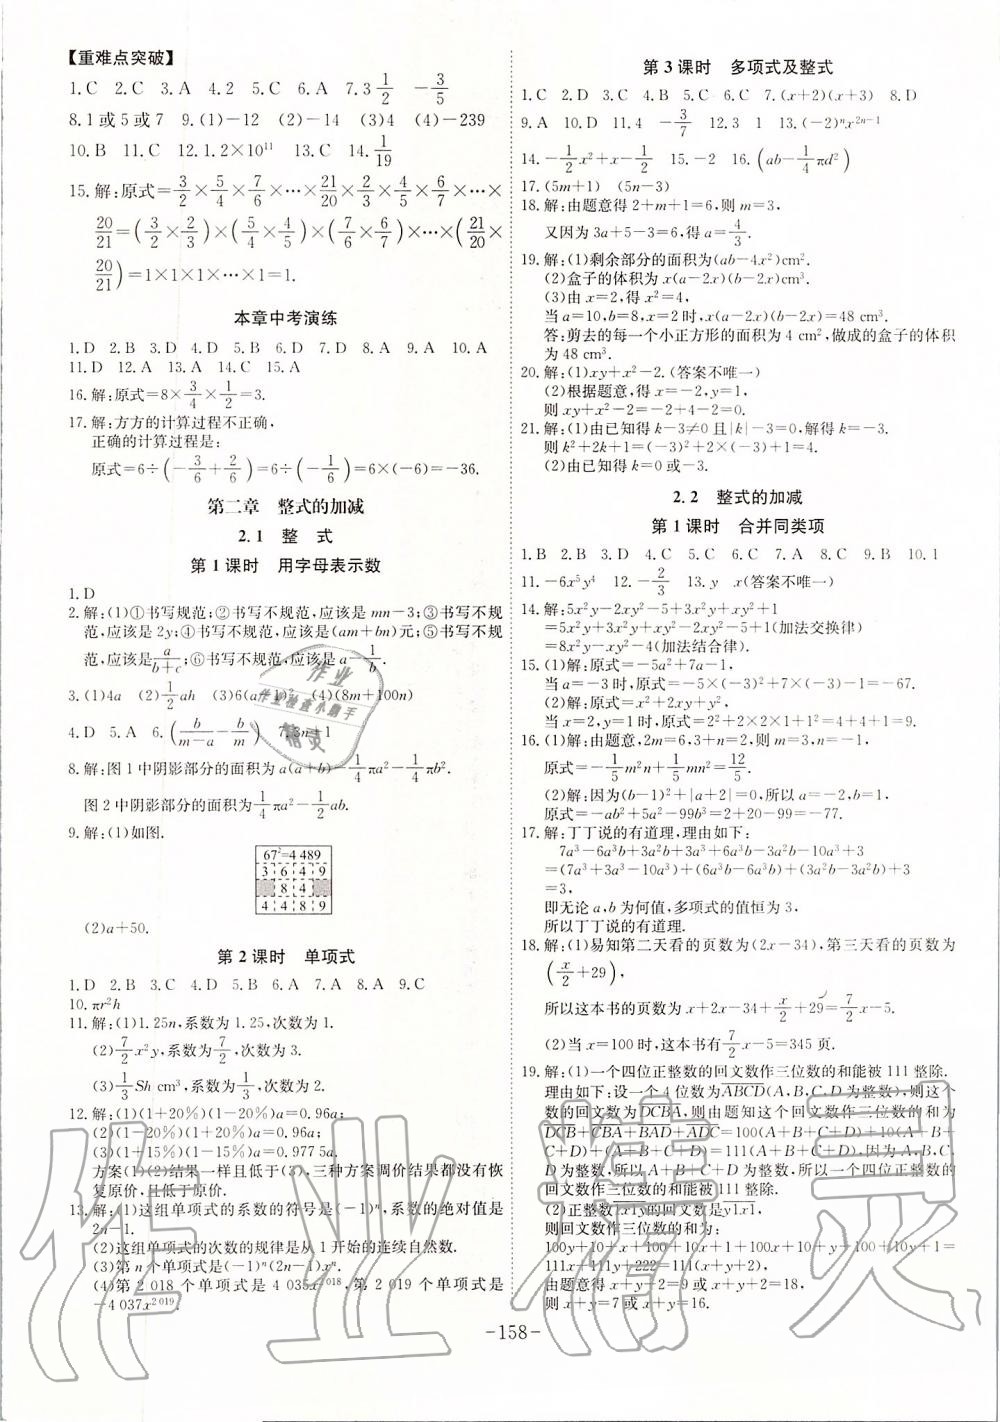 【重难点突破】
1.C 2.C 3.A 4.2 5.C 6.A 7.3 1/2 -3/5
8.1或5或7 9.(1)-12 (2)-14 (3)4 (4)-239
10.B 11.C 12.1.2×10¹¹ 13.C 14.1/19
15.解:原式=3/2×5/4×7/6×…×21/20×2/3×4/5×6/7×…×
20/21=(3/2×2/3)×(5/4×4/5)×(7/6×6/7)×…×(21/20×
20/21)=1×1×1×…×1=1.
本章中考演练
1.D 2.B 3.D 4.D 5.B 6.D 7.D 8.A 9.A 10.A
11.D 12.A 13.A 14.C 15.A
16.解:原式=8×3/4×1/2=3.
17.解:方方的计算过程不正确,
正确的计算过程是:
原式=6÷(-3/6+2/6)=6÷(-1/6)=6×(-6)=-36.
第二章 整式的加减
2.1 整 式
第1课时 用字母表示数
1.D
2.解:(1)①书写规范;②书写不规范,应该是mn-3;③书写不规
范,应该是2y;④书写不规范,应该是(am+bn)元;⑤书写不规
范,应该是a/(b+c);⑥书写不规范,应该是a-1/b.
3.(1)4a (2)1/2ah (3)6(a-1)² (4)(8m+100n)
4.D 5.A 6.(b/(m-a)-b/m) 7.3n+1
8.解:图1中阴影部分的面积为a(a+b)-1/4πa²-1/4πb².
图2中阴影部分的面积为1/4πa²-1/2ab.
9.解:(1)如图.
67²=4 489
3 6 4 9
8 4
4 4 8 9
(2)a+50.
第2课时 单项式
1.D 2.B 3.C 4.D 5.B 6.A 7.A 8.A 9.C
10.πr²h
11.解:(1)1.25n,系数为1.25,次数为1.
(2)7/2x²y,系数为7/2,次数为3.
(3)1/3Sh cm³,系数为1/3,次数为2.
12.解:(1)(1+20%)(1-20%)a=0.96a;
(2)(1-20%)(1+20%)a=0.96a;
(3)(1+15%)(1-15%)a=0.977 5a.
方案(1)(2)结果一样且低于(3),三种方案调价结果都没有恢
复原价,且低于原价.
13.解:(1)这组单项式的系数的符号是(-1)ⁿ,系数的绝对值是
2n-1.
(2)这组单项式的次数的规律是从1开始的连续自然数.
(3)第n个单项式是(-1)ⁿ(2n-1)xⁿ.
(4)第2 018个单项式是4 035x²⁰¹⁸,第2 019个单项式是
-4 037x²⁰¹⁹.
第3课时 多项式及整式
1.C 2.D 3.C 4.B 5.C 6.C 7.(x+2)(x+3) 8.D
9.A 10.D 11.4 -3/7 12.3 1 13.(-2)ⁿx²ⁿ⁻¹
14.-1/2x²+1/2x 15.-2 16.(ab-1/4πd²)
17.(5m+1) (5n-3)
18.解:由题意得2+m+1=6,则m=3,
又因为3a+5-3=6,得a=4/3.
19.解:(1)剩余部分的面积为(ab-4x²)cm².
(2)盒子的体积为x(a-2x)(b-2x)cm³.
(3)由x=2,得x²=4,
当a=10,b=8,x=2时,x(a-2x)(b-2x)=48 cm³.
答:剪去的每一个小正方形的面积为4 cm²,做成的盒子的体积
为48 cm³.
20.解:(1)xy+x²-2.(答案不唯一)
(2)根据题意,得x=-2,y=1,
则xy+x²-2=-2+4-2=0.
21.解:(1)由已知得k-3≠0且|k|-3=0,解得k=-3.
则k²+2k+1=(-3)²+2×(-3)+1=4.
(2)由已知得k=0或-3.
2.2 整式的加减
第1课时 合并同类项
1.B 2.B 3.D 4.C 5.C 6.D 7.A 8.C 9.B 10.1
11.-6x⁵y⁴ 12.-2/3 13.y x(答案不唯一)
14.解:5x²y-2xy²-5+3x²y+xy²+1
=5x²y+3x²y+xy²-2xy²-5+1(加法交换律)
=8x²y-xy²-4(加法结合律).
15.(1)解:原式=-5a²+7a-1,
当a=-3时,原式=-5×(-3)²+7×(-3)-1=-67.
(2)解:原式=x²+2xy+y²,
当x=2,y=1时,原式=2²+2×2×1+1²=4+4+1=9.
16.(1)解:由题意,2m=6,3+n=5,则m=3,n=2.
原式=-1/5m²n+1/5mn²=12/5.
(2)解:因为(b-1)²+|a+2|=0,所以a=-2,b=1.
原式=-ab²+5a²-99b³=2+20-99=-77.
17.解:丁丁说的有道理,理由如下:
7a³-6a³b+3a²b+3a³+6a³b-3a²b-10a³+3
=(7a³+3a³-10a³)+(-6a³b+6a³b)+(3a²b-3a²b)+3
=3,
即无论a,b为何值,多项式的值恒为3,
所以丁丁说的有道理.
18.解:(1)易知第二天看的页数为(2x-34),第三天看的页数为
(x/2+29),
所以这本书的页数为x+2x-34+x/2+29=7/2x-5.
(2)当x=100时,这本书有7/2x-5=345页.
19.解:(1)一个四位正整数的回文数作三位数的和能被111整除.
理由如下:设一个4位数为ABCD(A,B,C,D为整数),则这个
数的回文数为DCBA,则由题知这个回文数作三位数的和为
DCB+CBA+BAD+ADC=100(A+B+C+D)+10(A+B+
C+D)+(A+B+C+D)=111(A+B+C+D),因为A,B,C,D
为整数,所以A+B+C+D为整数,所以一个四位正整数的
回文数作三位数的和能被111整除.
(2)正整数x1y1的回文数是y1x1,
则回文数作三位数的和为:
100y+10+x+100+10x+1+100x+10+y+100+10y+1=
111x+111y+222=111(x+y+2),
由题意得x+y+2=9或x+y+2=18,
则x+y=7或x+y=16.
-158-
作业
作业检查小助手
精灵
作业精灵